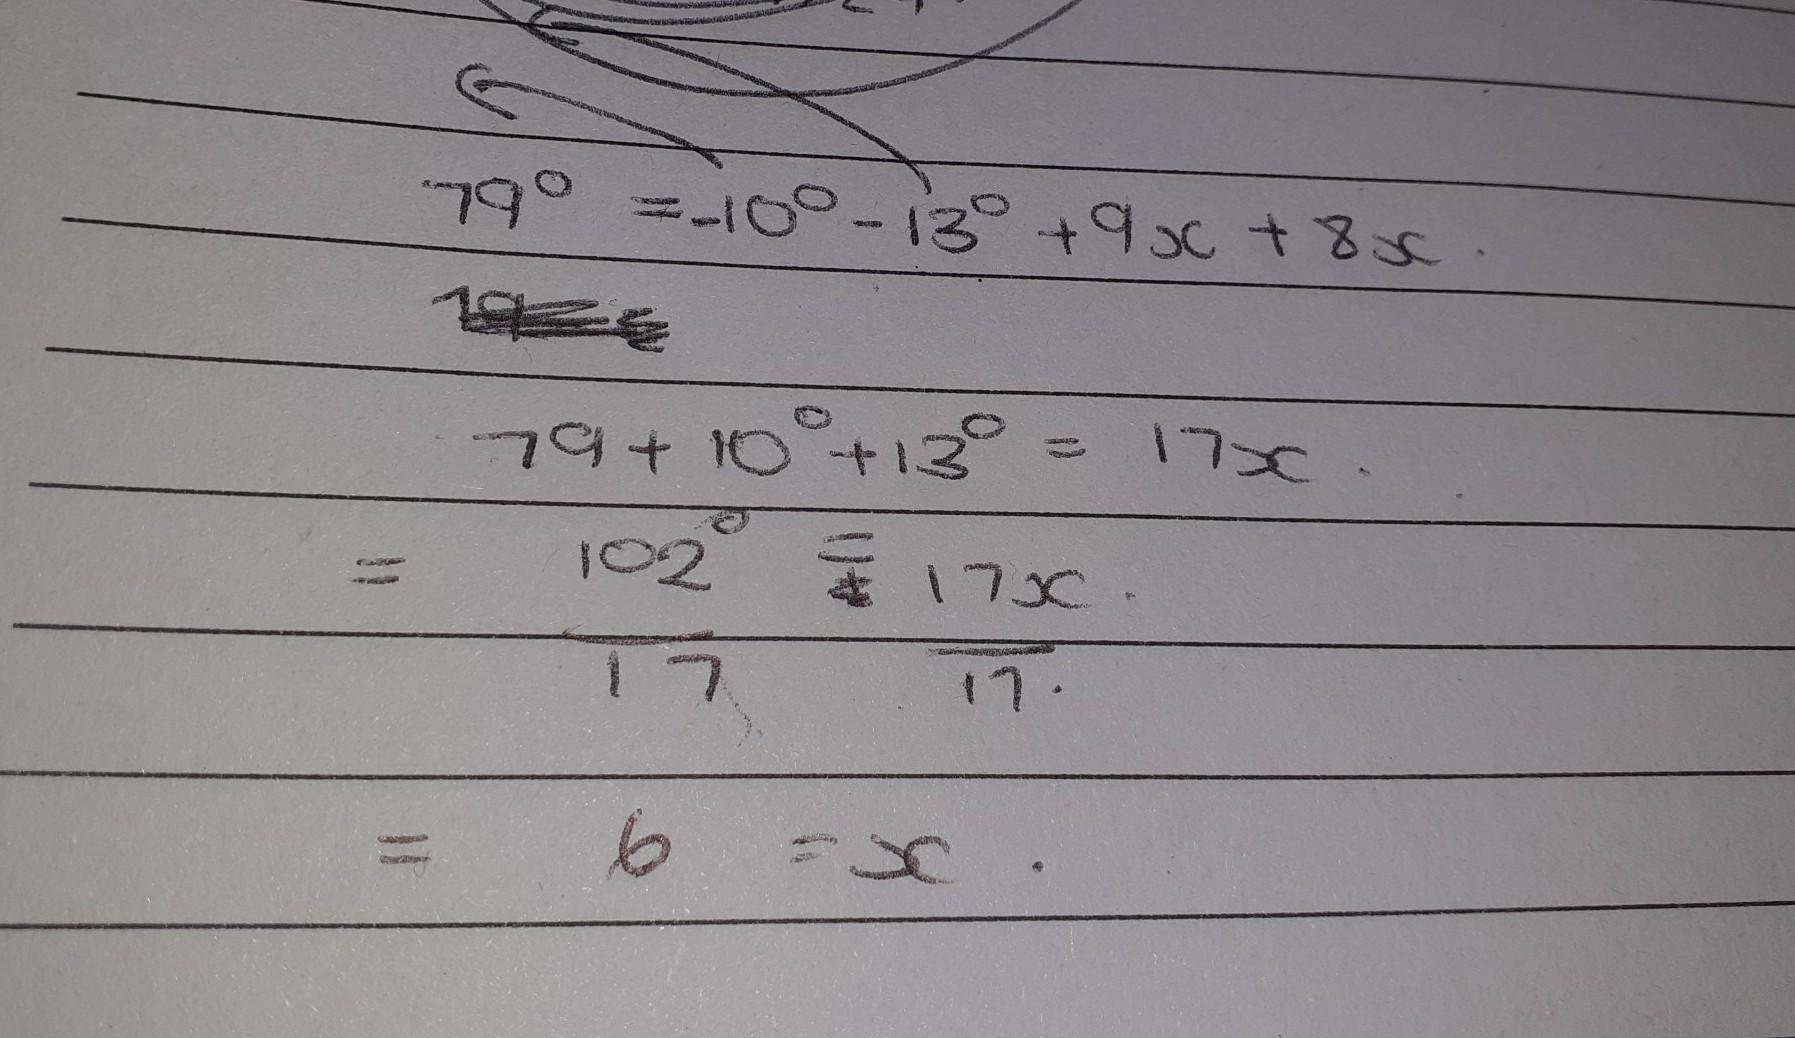 79° = -10° - 13° + 9x + 8x.
79 + 10° + 13° = 17x.
= 102° = 17x.
17 17.
= 6 = x.